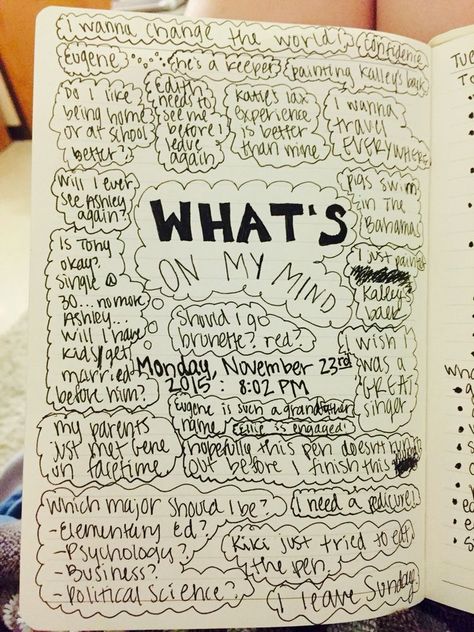 I wanna change the world!
Confidence
Eugene....he's a keeper
painting Kalley's back
Do I like
being home
or at school
better?
Edith
needs to
see me
before I
leave
again
Katie's lax
experience
is better
than mine
I wanna
travel
EVERYWHERE
Will I ever
see Ashley
again?
WHAT'S
ON MY MIND
pigs swim
in the
Bahamas
Is Tony
okay?
Single @
30... no more
Ashley...
will I have
kids/get
married
before him?
I just painted
Kalley's
back
Should I go
brunette? red?
Monday, November 23rd
2015 : 8:02 PM
I wish I
was a
GREAT
singer
Eugene is such a grandfather
name
Ellie is engaged!
my parents
just met Gene
on facetime
hopefully this pen doesn't run
out before I finish this
Which major should I be?
-Elementary Ed?
-Psychology?
-Business?
-Political Science?
I need a pedicure!
Kiki just tried to eat
the pen.
I leave Sunday